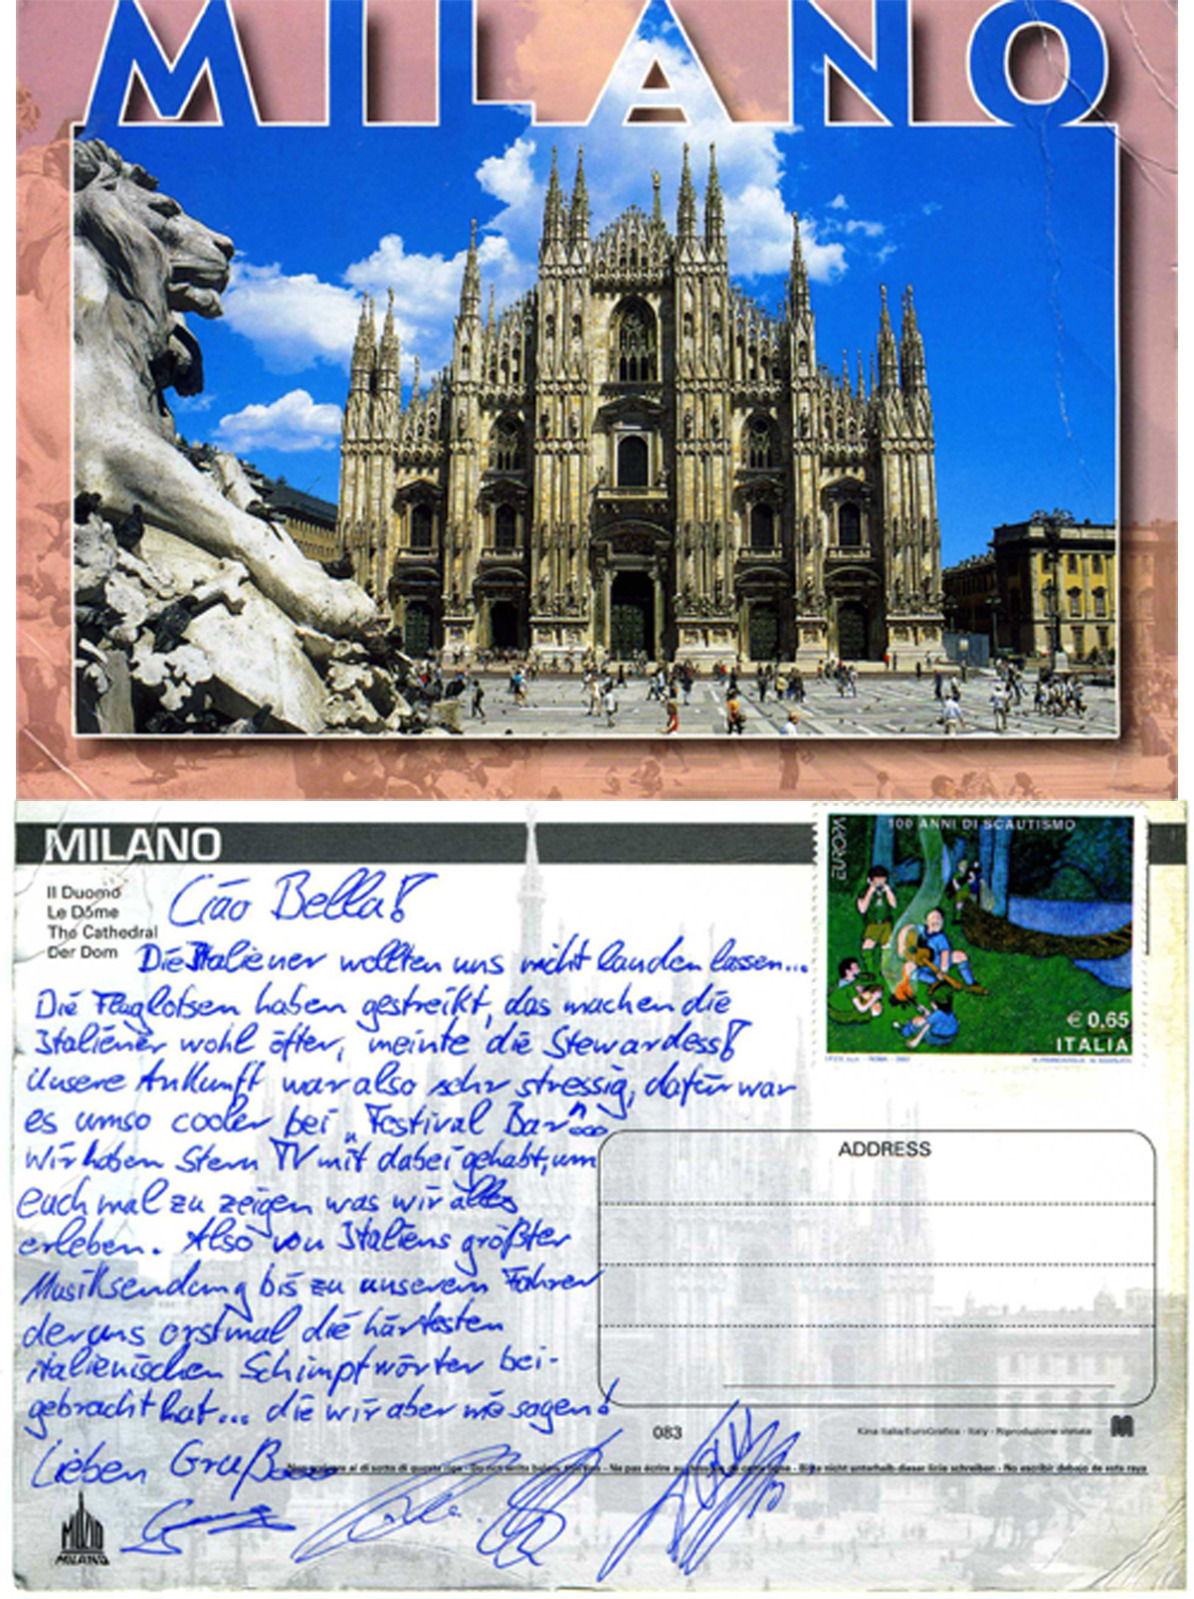 MILANO
MILANO
Il Duomo
Le Dôme
The Cathedral
Der Dom
Ciao Bella!
Die Italiener wollten uns nicht landen lassen...
Die Fluglotsen haben gestreikt, das machen die
Italiener wohl öfter, meinte die Stewardess!
Unsere Ankunft war also sehr stressig, dafür war
es umso cooler bei „Festival Bar"...
Wir haben Stern TV mit dabei gehabt, um
euch mal zu zeigen was wir alles
erleben. Also von Italiens größter
Musiksendung bis zu unserem Fahrer
der uns erstmal die härtesten
italienischen Schimpfwörter bei-
gebracht hat... die wir aber nie sagen!
Lieben Gruß...
EUROPA
100 ANNI DI SCAUTISMO
€ 0.65
ITALIA
ADDRESS
083
Kina Italia/EuroGrafica - Italy - Riproduzione vietata
Non scrivere al di sotto di questa riga - Do not write below this line - Ne pas écrire au dessous de cette ligne - Bitte nicht unterhalb dieser linie schreiben - No escribir debajo de esta raya
MILANO